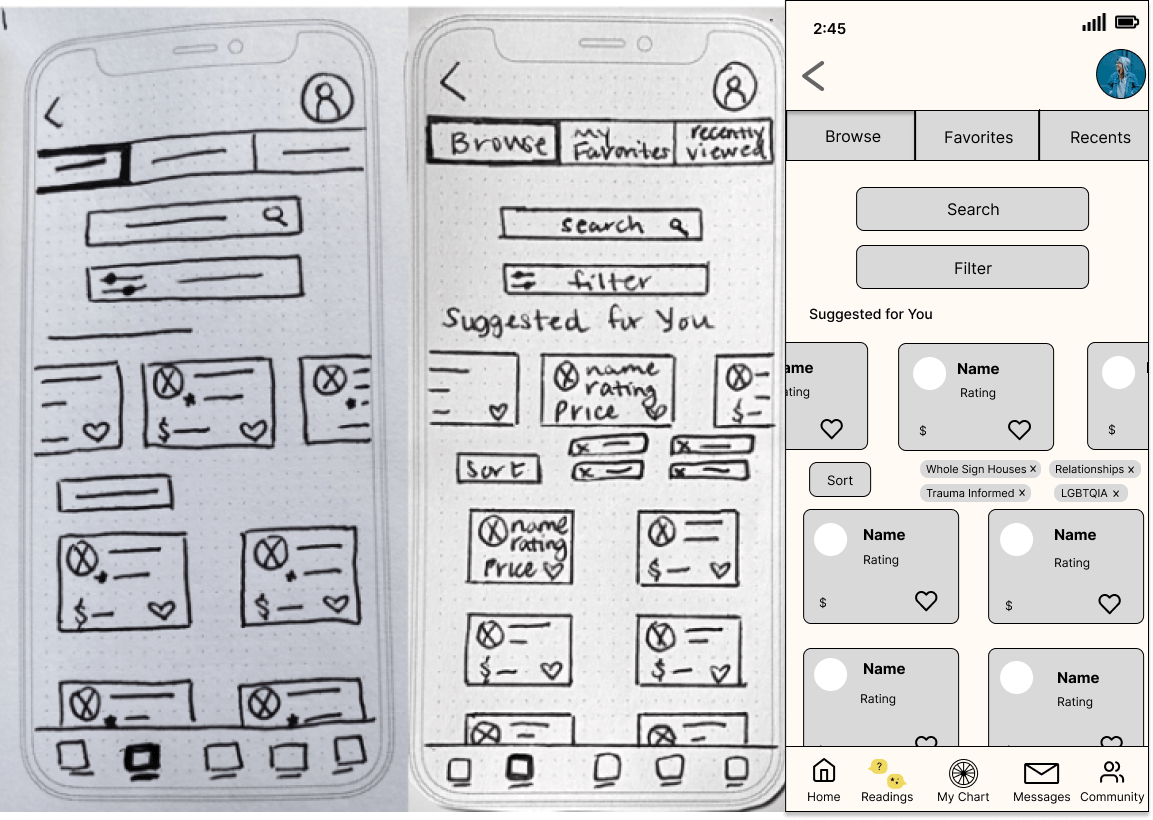 $
$
$
Browse
My
Favorites
recently
viewed
search
filter
Suggested for You
name
rating
Price
$
Sort
x
x
x
x
name
rating
Price
$
$
$
2:45
Browse
Favorites
Recents
Search
Filter
Suggested for You
ame
ating
Name
Rating
$
$
Sort
Whole Sign Houses x
Relationships x
Trauma Informed x
LGBTQIA x
Name
Rating
$
Name
Rating
$
Name
Rating
Name
Rating
?
Home
Readings
My Chart
Messages
Community